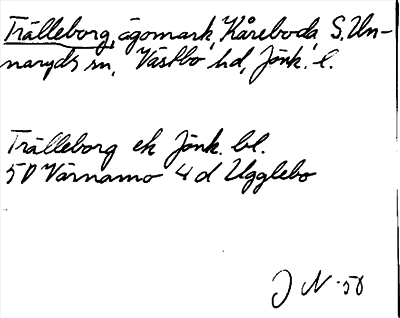 Trälleborg, ägomark, Kåreboda, S. Un-
naryds sn, Västbo hd, Jönk. l.
Trälleborg ek Jönk. bl.
5D Värnamo 4d Ugglebo
J N -58